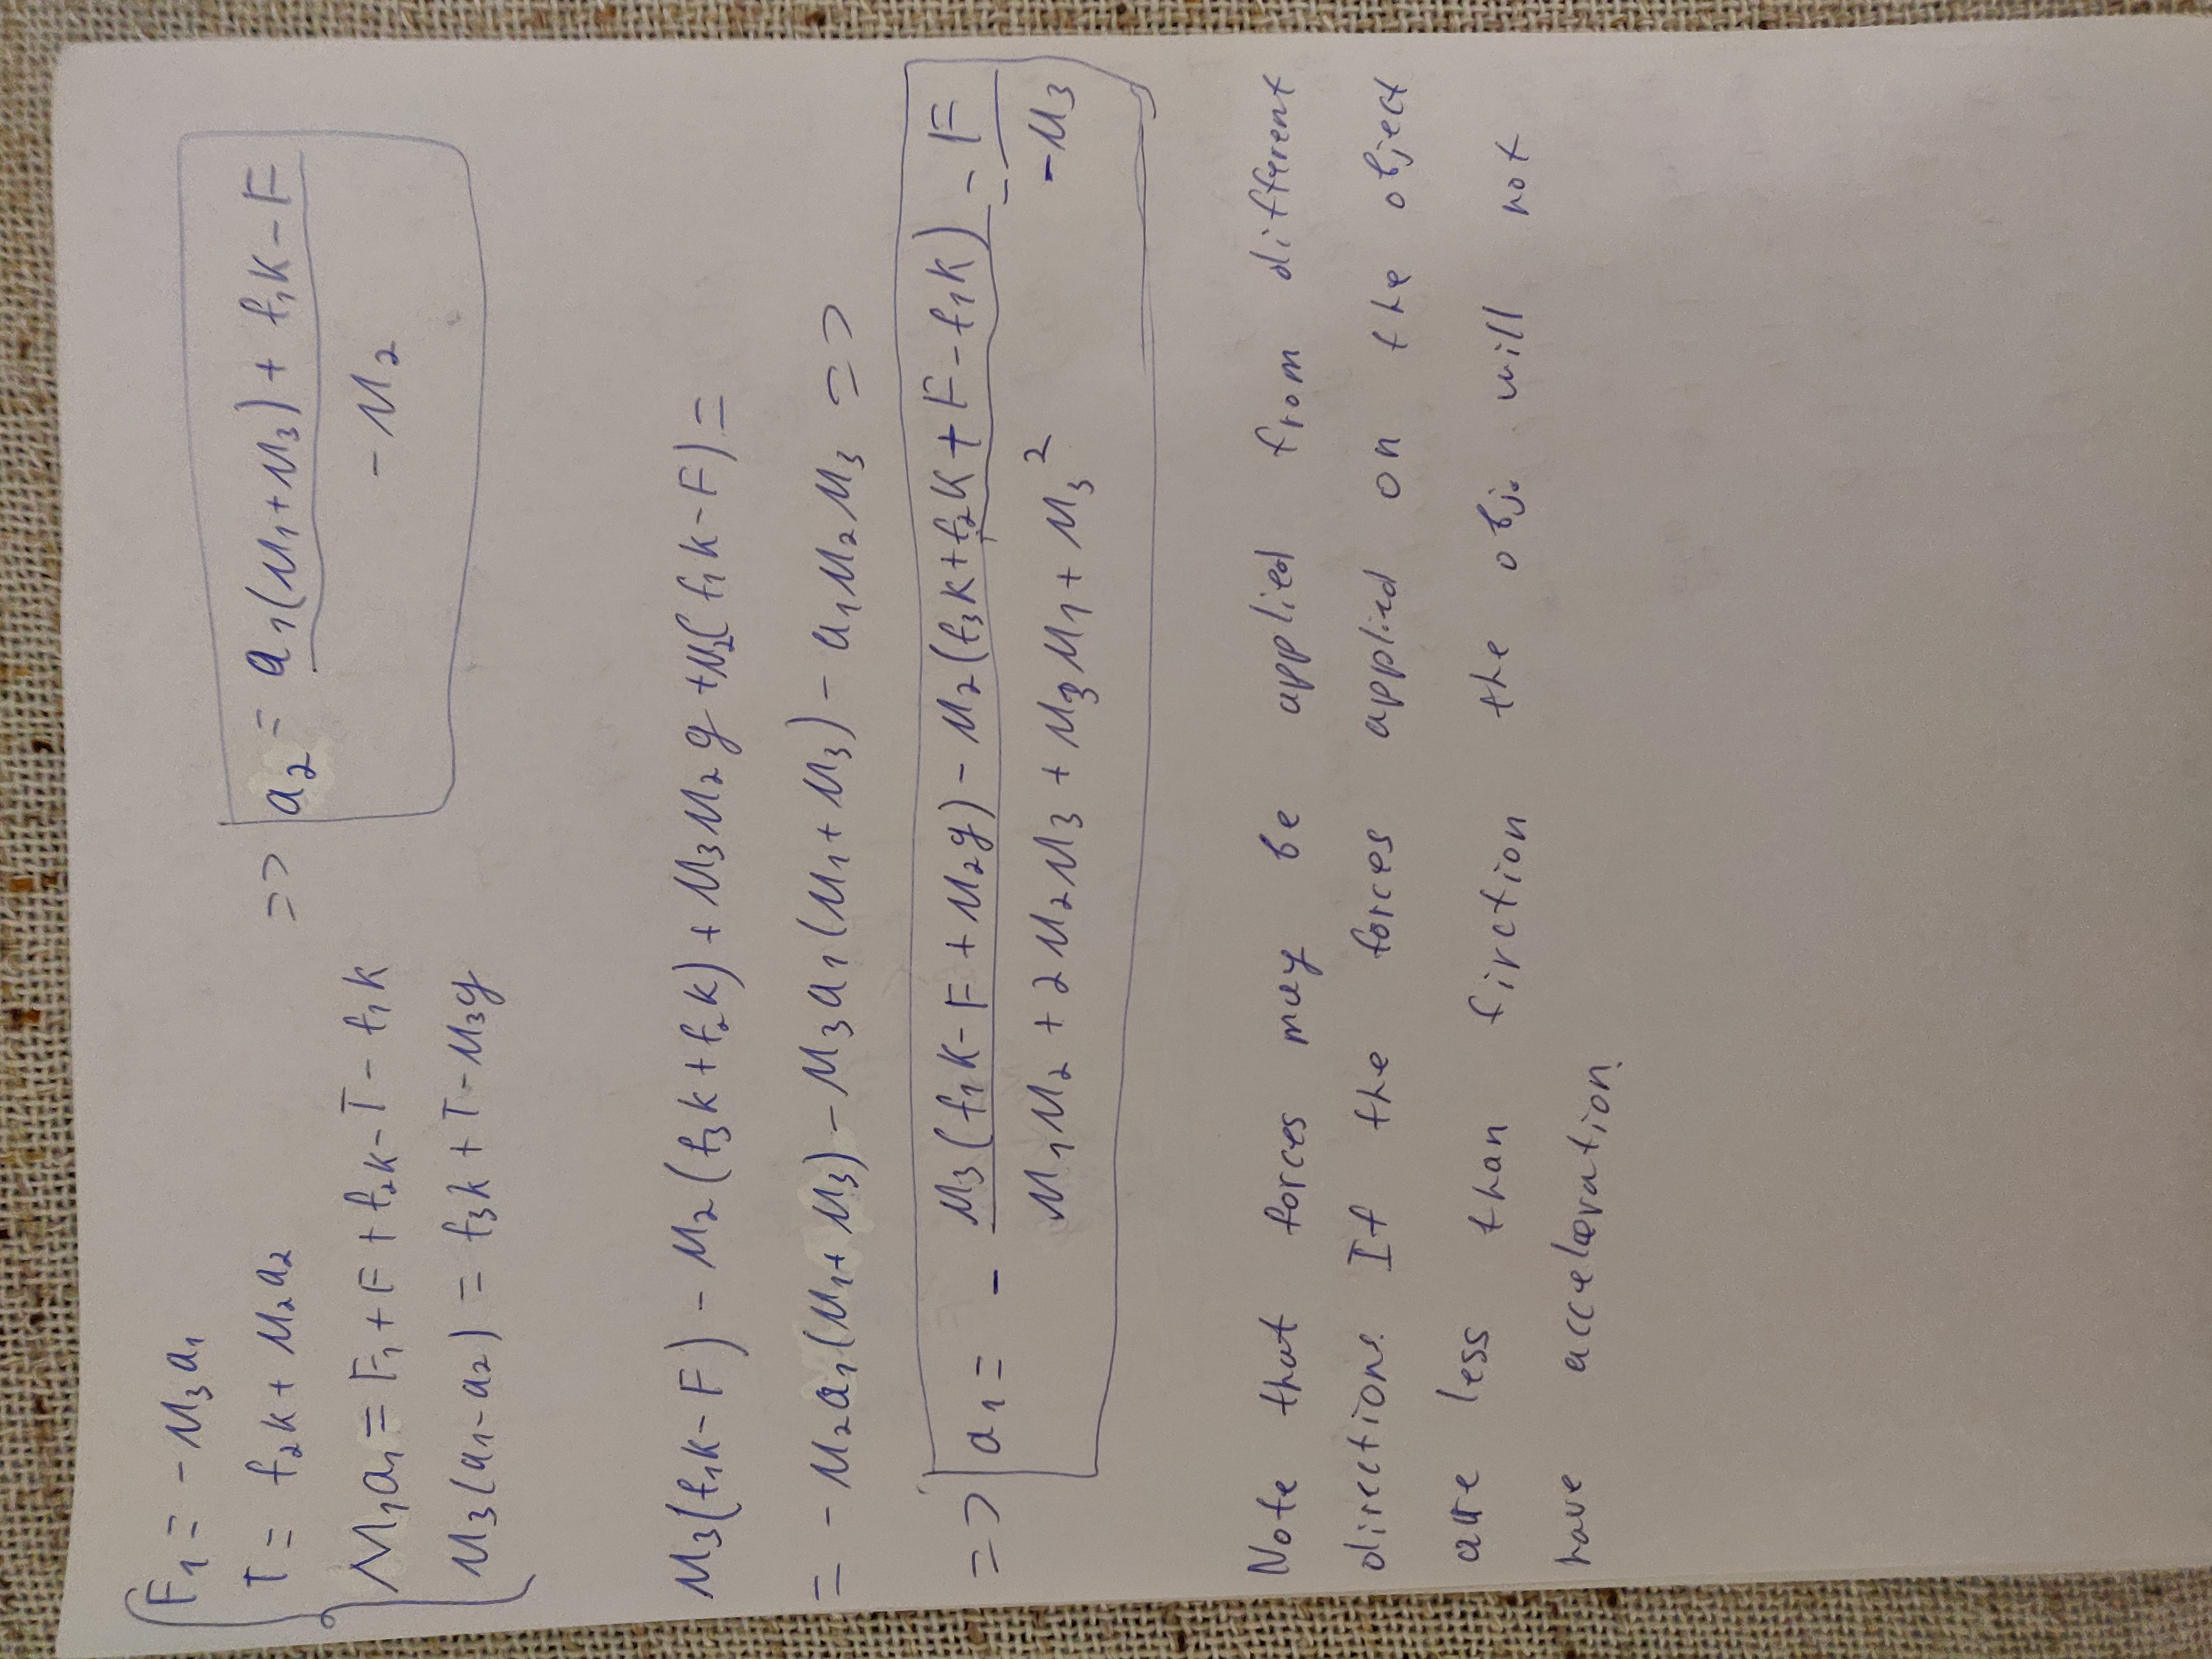 F₁ = -M₃a₁
T = f₂k + M₂a₂
M₁a₁ = F₁ + F + f₂k - T - f₁k
M₃(a₁-a₂) = f₃k + T - M₃g
=> a₂ = (a₁(M₁+M₃) + f₁k - F) / (-M₂)
M₃(f₁k - F) - M₂(f₃k + f₂k) + M₃M₂g + M₂(f₁k - F) =
= - M₂a₁(M₁+M₃) - M₃a₁(M₁+M₃) - a₁M₂M₃ =>
=> a₁ = - (M₃(f₁k - F + M₂g) - M₂(f₃k + f₂k + F - f₁k)) / (M₁M₂ + 2M₂M₃ + M₃M₁ + M₃²) = F / (-M₃)
Note that forces may be applied from different
directions. If the forces applied on the object
are less than firction the obj. will not
have acceleration.